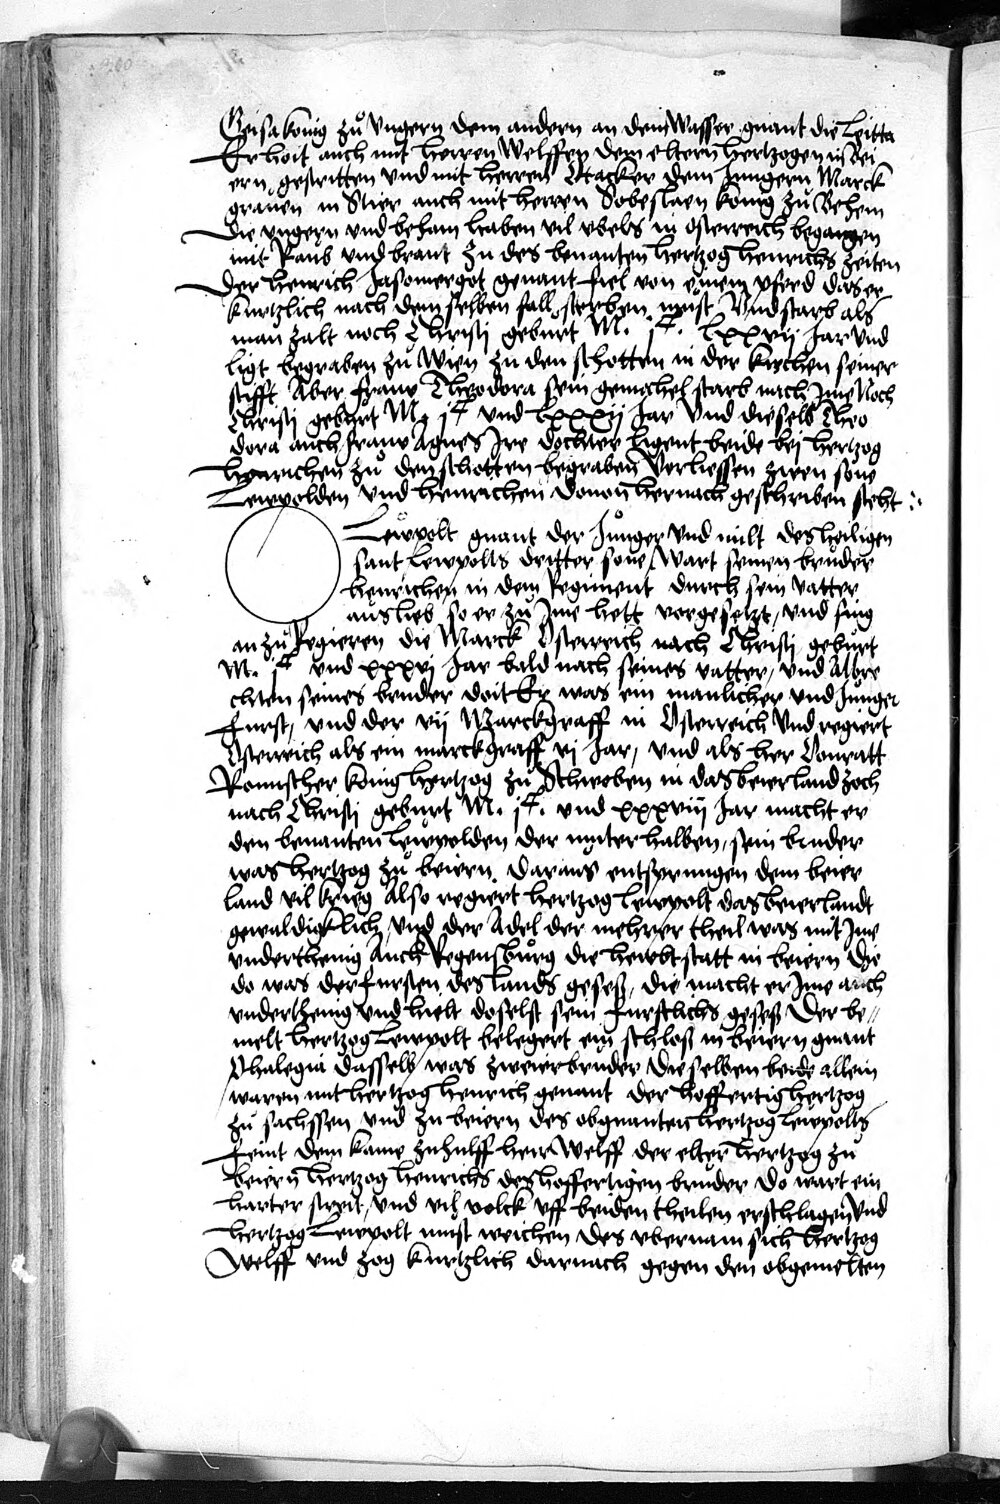 Geisa konig zů Vngern dem andern an dem Wasser gnant die Leitta
Er hoit auch mit herren Welffen dem eltern hertzogen in Bei
ern gestritten vnd mit herren Otacker dem Jungern Marck
grauen in Stier auch mit herren Sobeslaen konig zů Behem
Die vngern vnd beham haben vil vbels in osterreich begangen
mit Raub vnd brant zu des benanten hertzog henrichs zeiten
Der henrich Jasomergot genant fiel von einem pferd das er
kurtzlich nach dem selben fall sterben must Vnd starb als
man zalt noch Christi geburt M. jc. lxxvij Jar vnd
ligt begraben zů Wien zu den schotten in der kirchen seiner
stifft Aber frauw Theodora sein gemachel starb nach Ime Noch
Christi geburt M. jc vnd lxxxij Jar Vnd die selb Theo
dora auch frauw Agnes Ire dochter ligent beide bej hertzog
henrichen zů den schotten begraben Verliessen zwen sone
Lewpolden vnd henrichen donon hernach geschriben steht :~
Lewpolt gnant der Junger vnd milt des heiligen
sant Lewpolts dritter sone, Wart seinen bruder
henrichen in dem Regiment durch sein vatter
aus lieb so er zů Ime hett vorgesetzt, vnd fing
an zů Regieren die Marck Osterreich nach Christi geburt
M. jc vnd xxxvj Jar bald nach seines vatter, vnd Albre
chten seines bruder doit Er was ein manlicher vnd Junger
Furst, vnd der vij Marckgraff in Osterreich Vnd regiert
Osterreich als ein marckgraff vj Jar, vnd als her Conratt
Romischer konig hertzog zů Schwoben in das beierland zoch
nach Christi geburt M. jc. vnd xxxviij Jar macht er
den benanten Lewpolden der muter halben, sein bruder
was hertzog zů beiern. Daraus entsprungen dem beier
land vil krieg Also regiert hertzog Lewpolt das beierlandt
gewaldigklich, vnd der Adel der mehrer theil was mit Ime
vnderthenig Auch Regensburg die heubtstatt in beiern Die
do was der fursten des Lands geseß, die macht er Ime auch
vnderthenig vnd hielt doselst sein furstlichs geseß Der be〃
melt hertzog Lewpolt belegert ein schloß in beiern gnant
Phalegia dasselb was zweier bruder Die selben beide allein
waren mit hertzog henrich genant der hoffertig hertzog
zů sachssen vnd zu beiern des obgnanten hertzog Lewpolts
Feint dem kame zu hulff herr Welff der elter hertzog zů
beiern hertzog henrichs des hoffertigen bruder Do wart ein
harter streit, vnd vil volck vff beiden theilen erschlagen Vnd
hertzog Lewpolt must weichen Des vbernam sich hertzog
Welff vnd zog kurtzlich darnach gegen den obgemelten